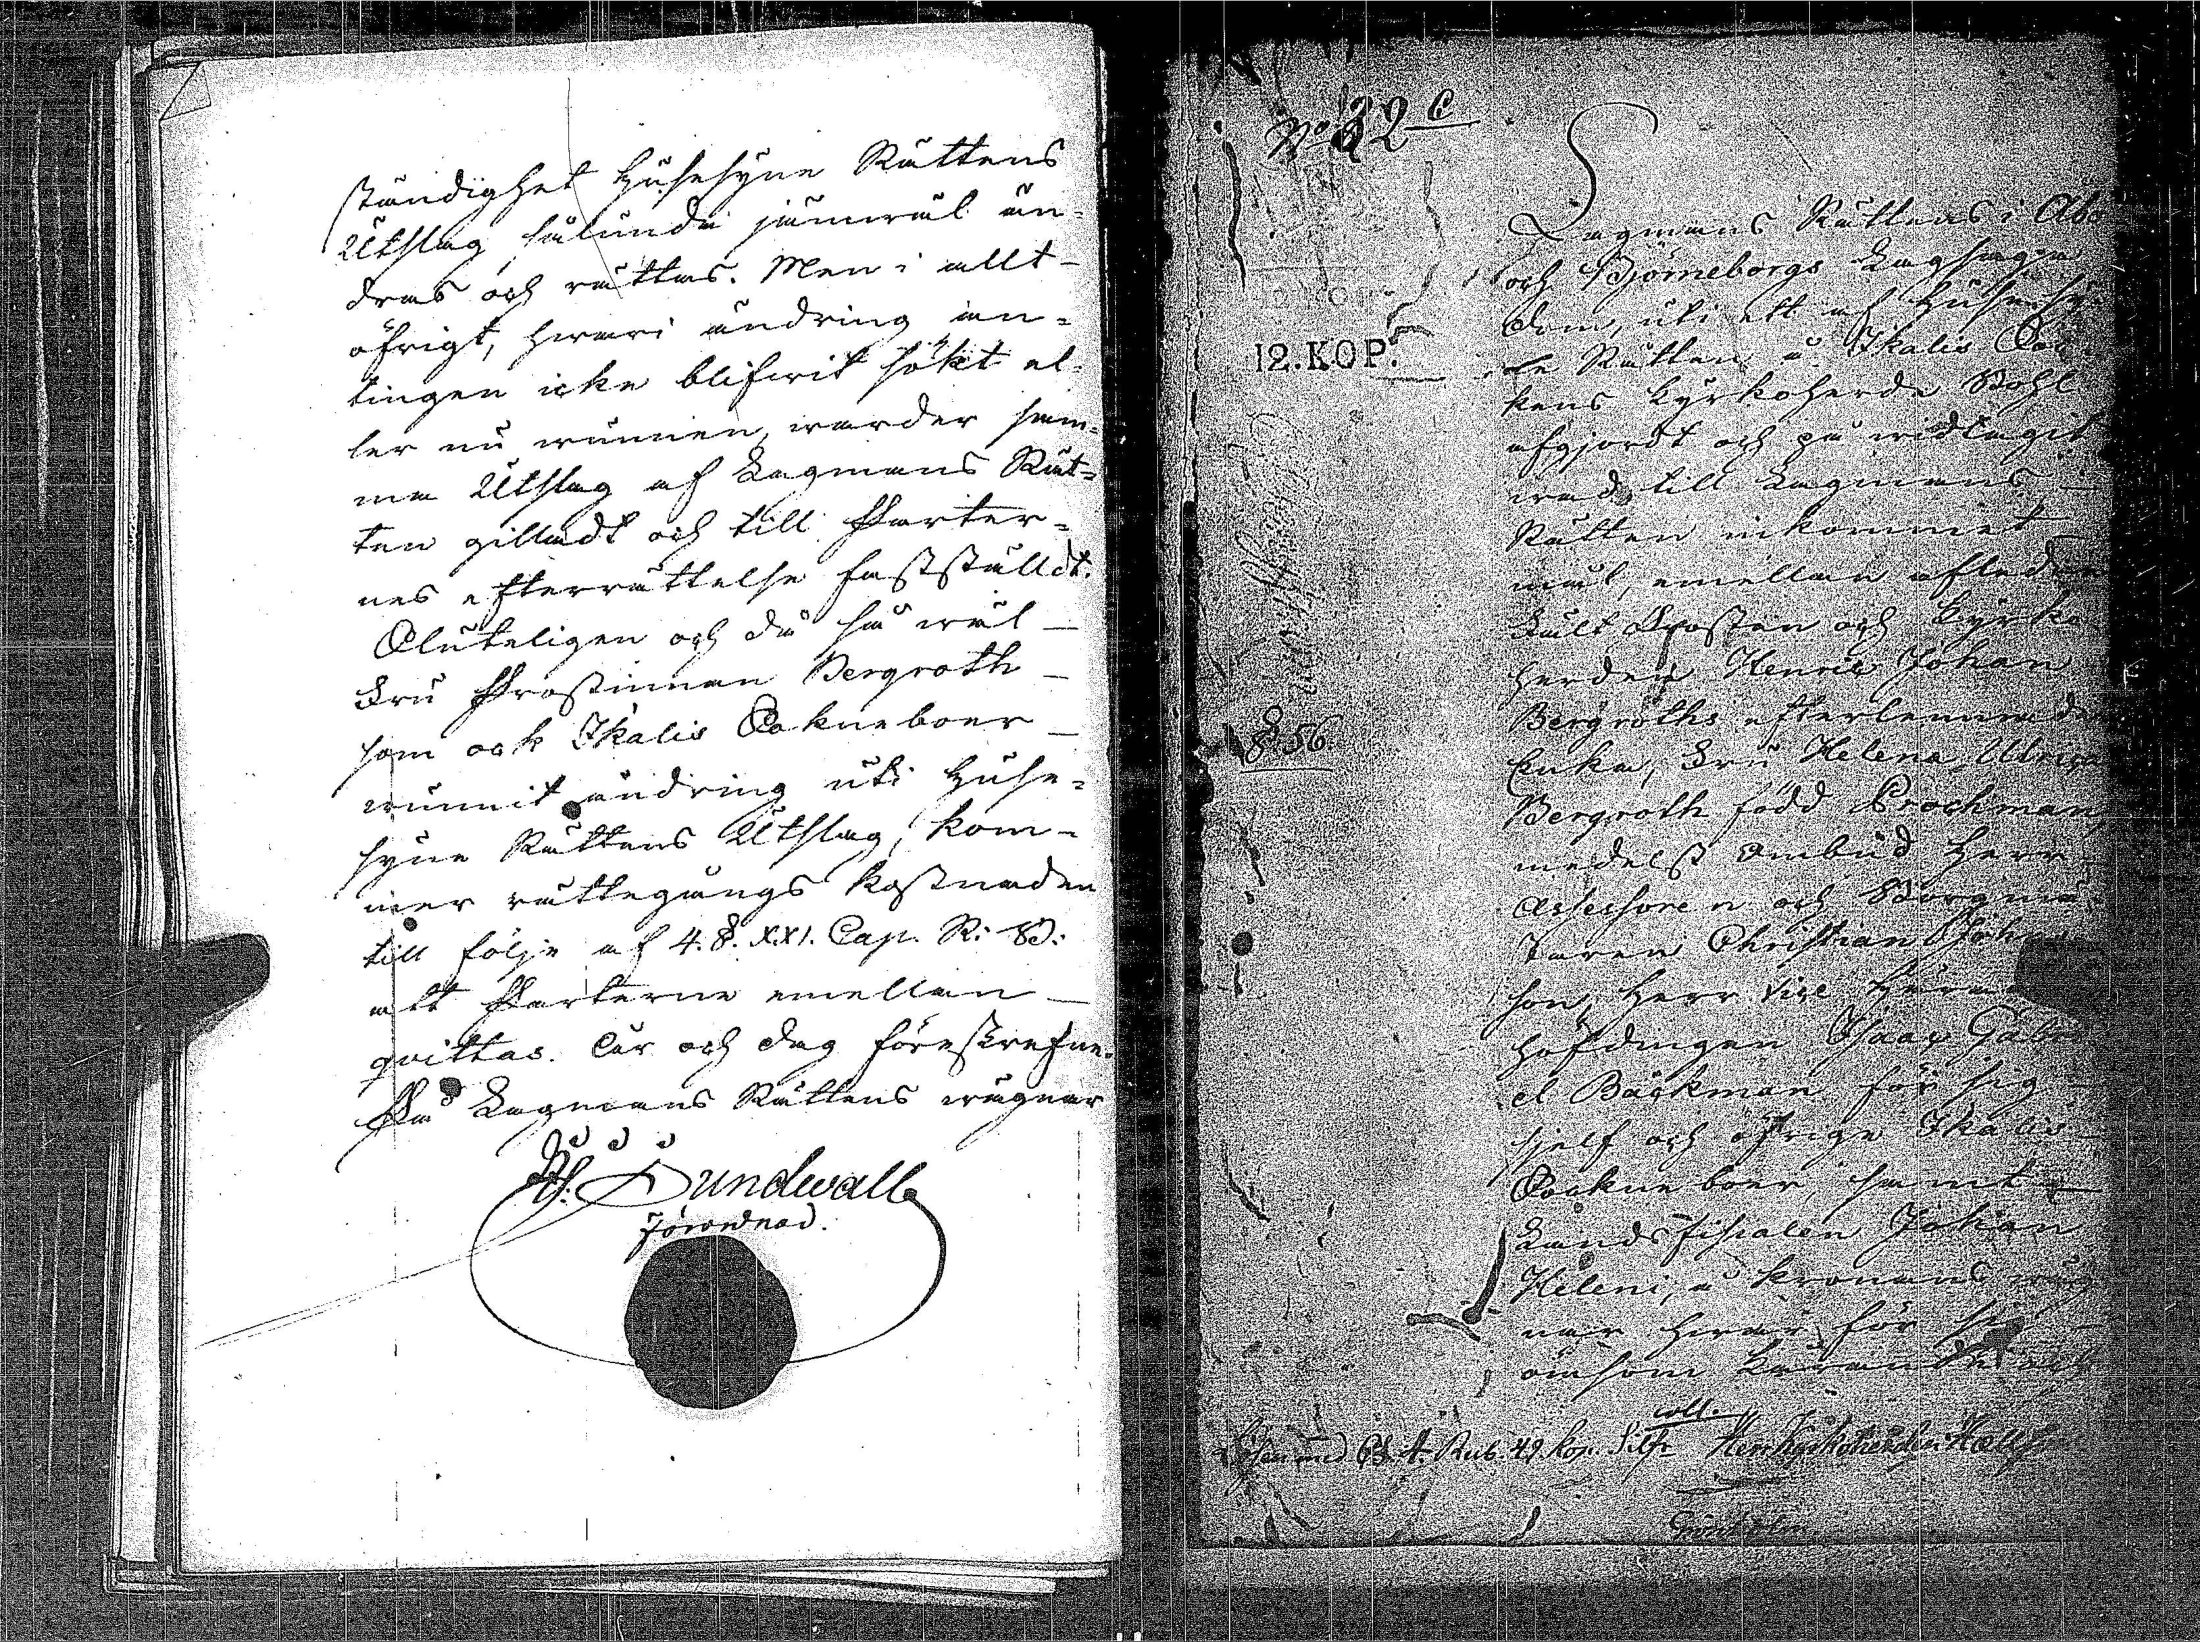 ständighet Husesyns Rättens
Utslag sålunda jämwäl än-
dras och rättas. Men i allt
öfrigt, hwari ändring an-
tingen icke blifwit sökt el-
ler nu wunnen, warder sam-
ma Utslag af Lagmans Rät-
ten gilladt och till Parter-
nes efterrättelse fastställdt.
Sluteligen och då så wäl
Fru Prostinnan Bergroth
som ock Ikalis Sokneboer
wunnit ändring uti Huse-
syns Rättens Utslag, kom-
mer rättegångs kostnaden
till följe af 4. §. XXI. Cap. R: B:
att Parterne emellan
qvittas. År och dag föreskrefne.
På Lagmans Rättens wägnar
Sundwall
No 32 C
Lagmans Rättens i Åbo
och Björneborgs Lagsaga
Dom, uti ett af Husesy-
ne Rätten å Ikalis Sock-
kens Kyrkoherde Bohl
afgjordt och på widtagit
wad till Lagmans
Rätten inkommet
12. KOP.
mål, emellan afledne
Fält Prosten och Kyrko-
herden Henric Johan
Bergroths efterlemnade
§ 56
Enka, Fru Helena Ulrica
Bergroth född Prochman,
medelst Ombud Herr
Assessoren och Borgmä-
staren Christian
son, Herr Vice Härads
höfdingen Isaac Gabri
el Bäckman för sig
sjelf och öfrige Ikalis
Sockne boer, samt
Landsfiscalen Johan
Heleni, å Kronans wäg
nar
ömsom Kärande och
coll.
Lösen med 4. Rub. 49 kop. Silfr Herr Kyrkoherden